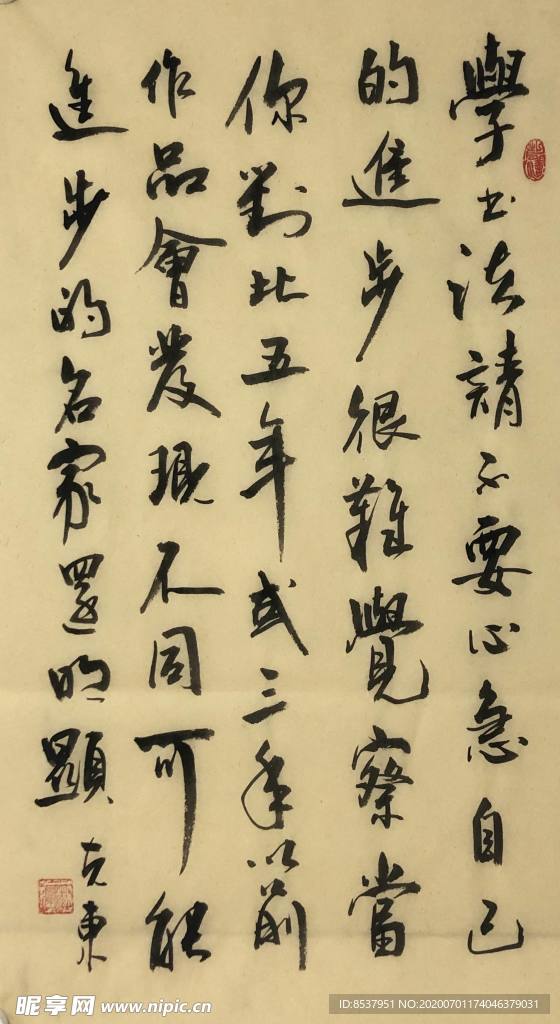 學书法請不要心急自己
的進步很難覺察當
你對比五年或三年以前
作品會發現不同可能
進步的名家還明顯
克東
昵享网 www.nipic.cn
ID:8537951 NO:20200701174046379031